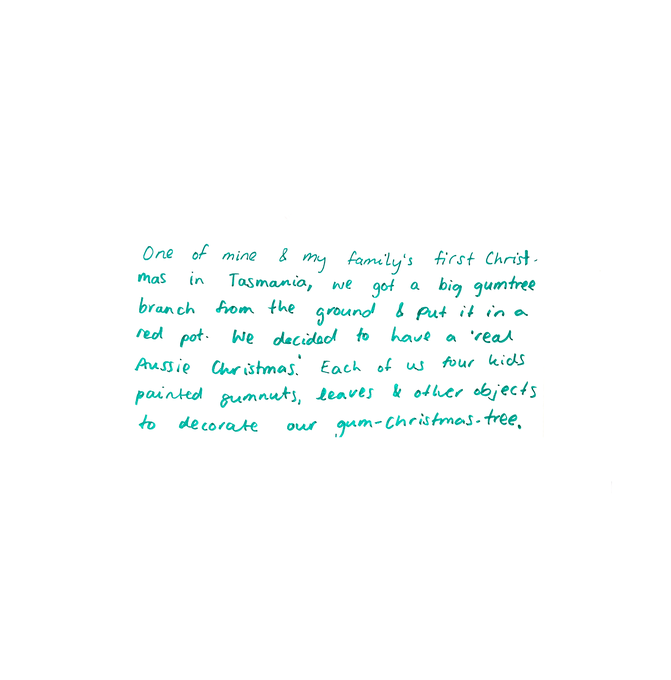 One of mine & my family's first Christ-
mas in Tasmania, we got a big gumtree
branch from the ground & put it in a
red pot. We decided to have a 'real
Aussie Christmas.' Each of us four kids
painted gumnuts, leaves & other objects
to decorate our gum-Christmas-tree.